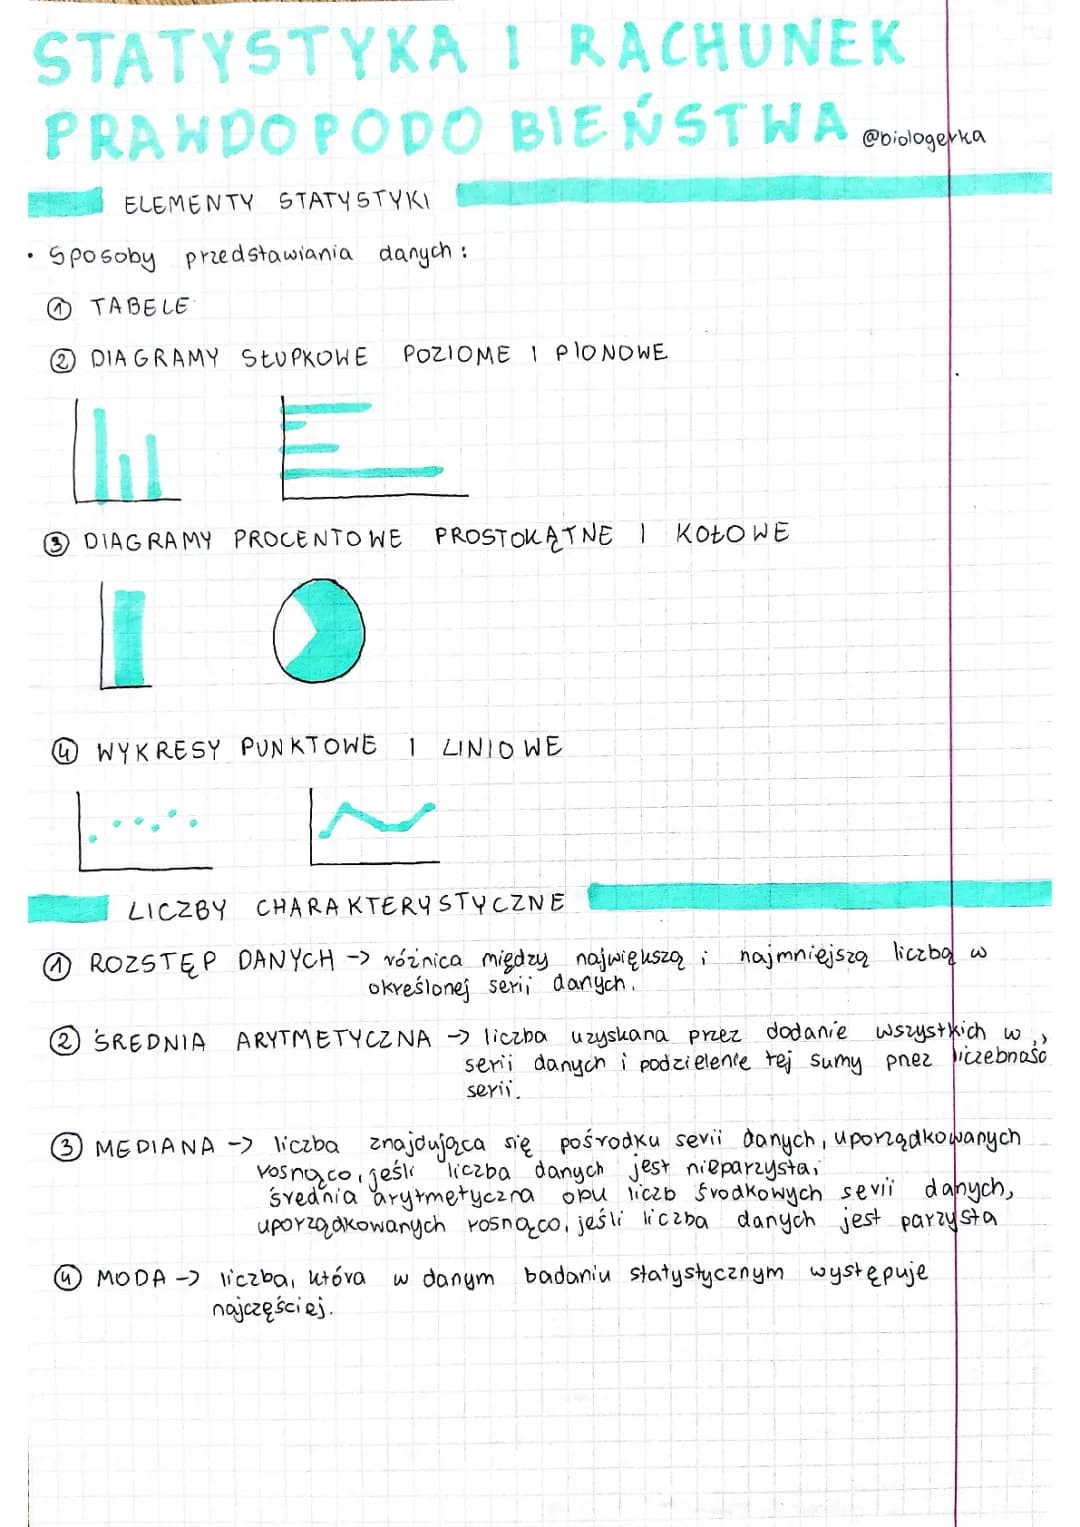 STATYSTYKA I RACHUNEK
PRAWDOPODOBIEŃSTWA @biologerka
ELEMENTY STATYSTYKI
• Sposoby przedstawiania danych:
① TABELE
② DIAGRAMY SŁUPKOWE POZIOME I PIONOWE
③ DIAGRAMY PROCENTOWE PROSTOKĄTNE I KOŁOWE
④ WYKRESY PUNKTOWE I LINIOWE
LICZBY CHARAKTERYSTYCZNE
① ROZSTĘP DANYCH -> różnica między największą i najmniejszą liczbą w
określonej serii danych.
② ŚREDNIA ARYTMETYCZNA -> liczba uzyskana przez dodanie wszystkich w
serii danych i podzielenie tej sumy przez liczebność
serii.
③ MEDIANA -> liczba znajdująca się pośrodku serii danych, uporządkowanych
rosnąco, jeśli liczba danych jest nieparzysta;
średnia arytmetyczna obu liczb środkowych serii danych,
uporządkowanych rosnąco, jeśli liczba danych jest parzysta
④ MODA -> liczba, która w danym badaniu statystycznym występuje
najczęściej.